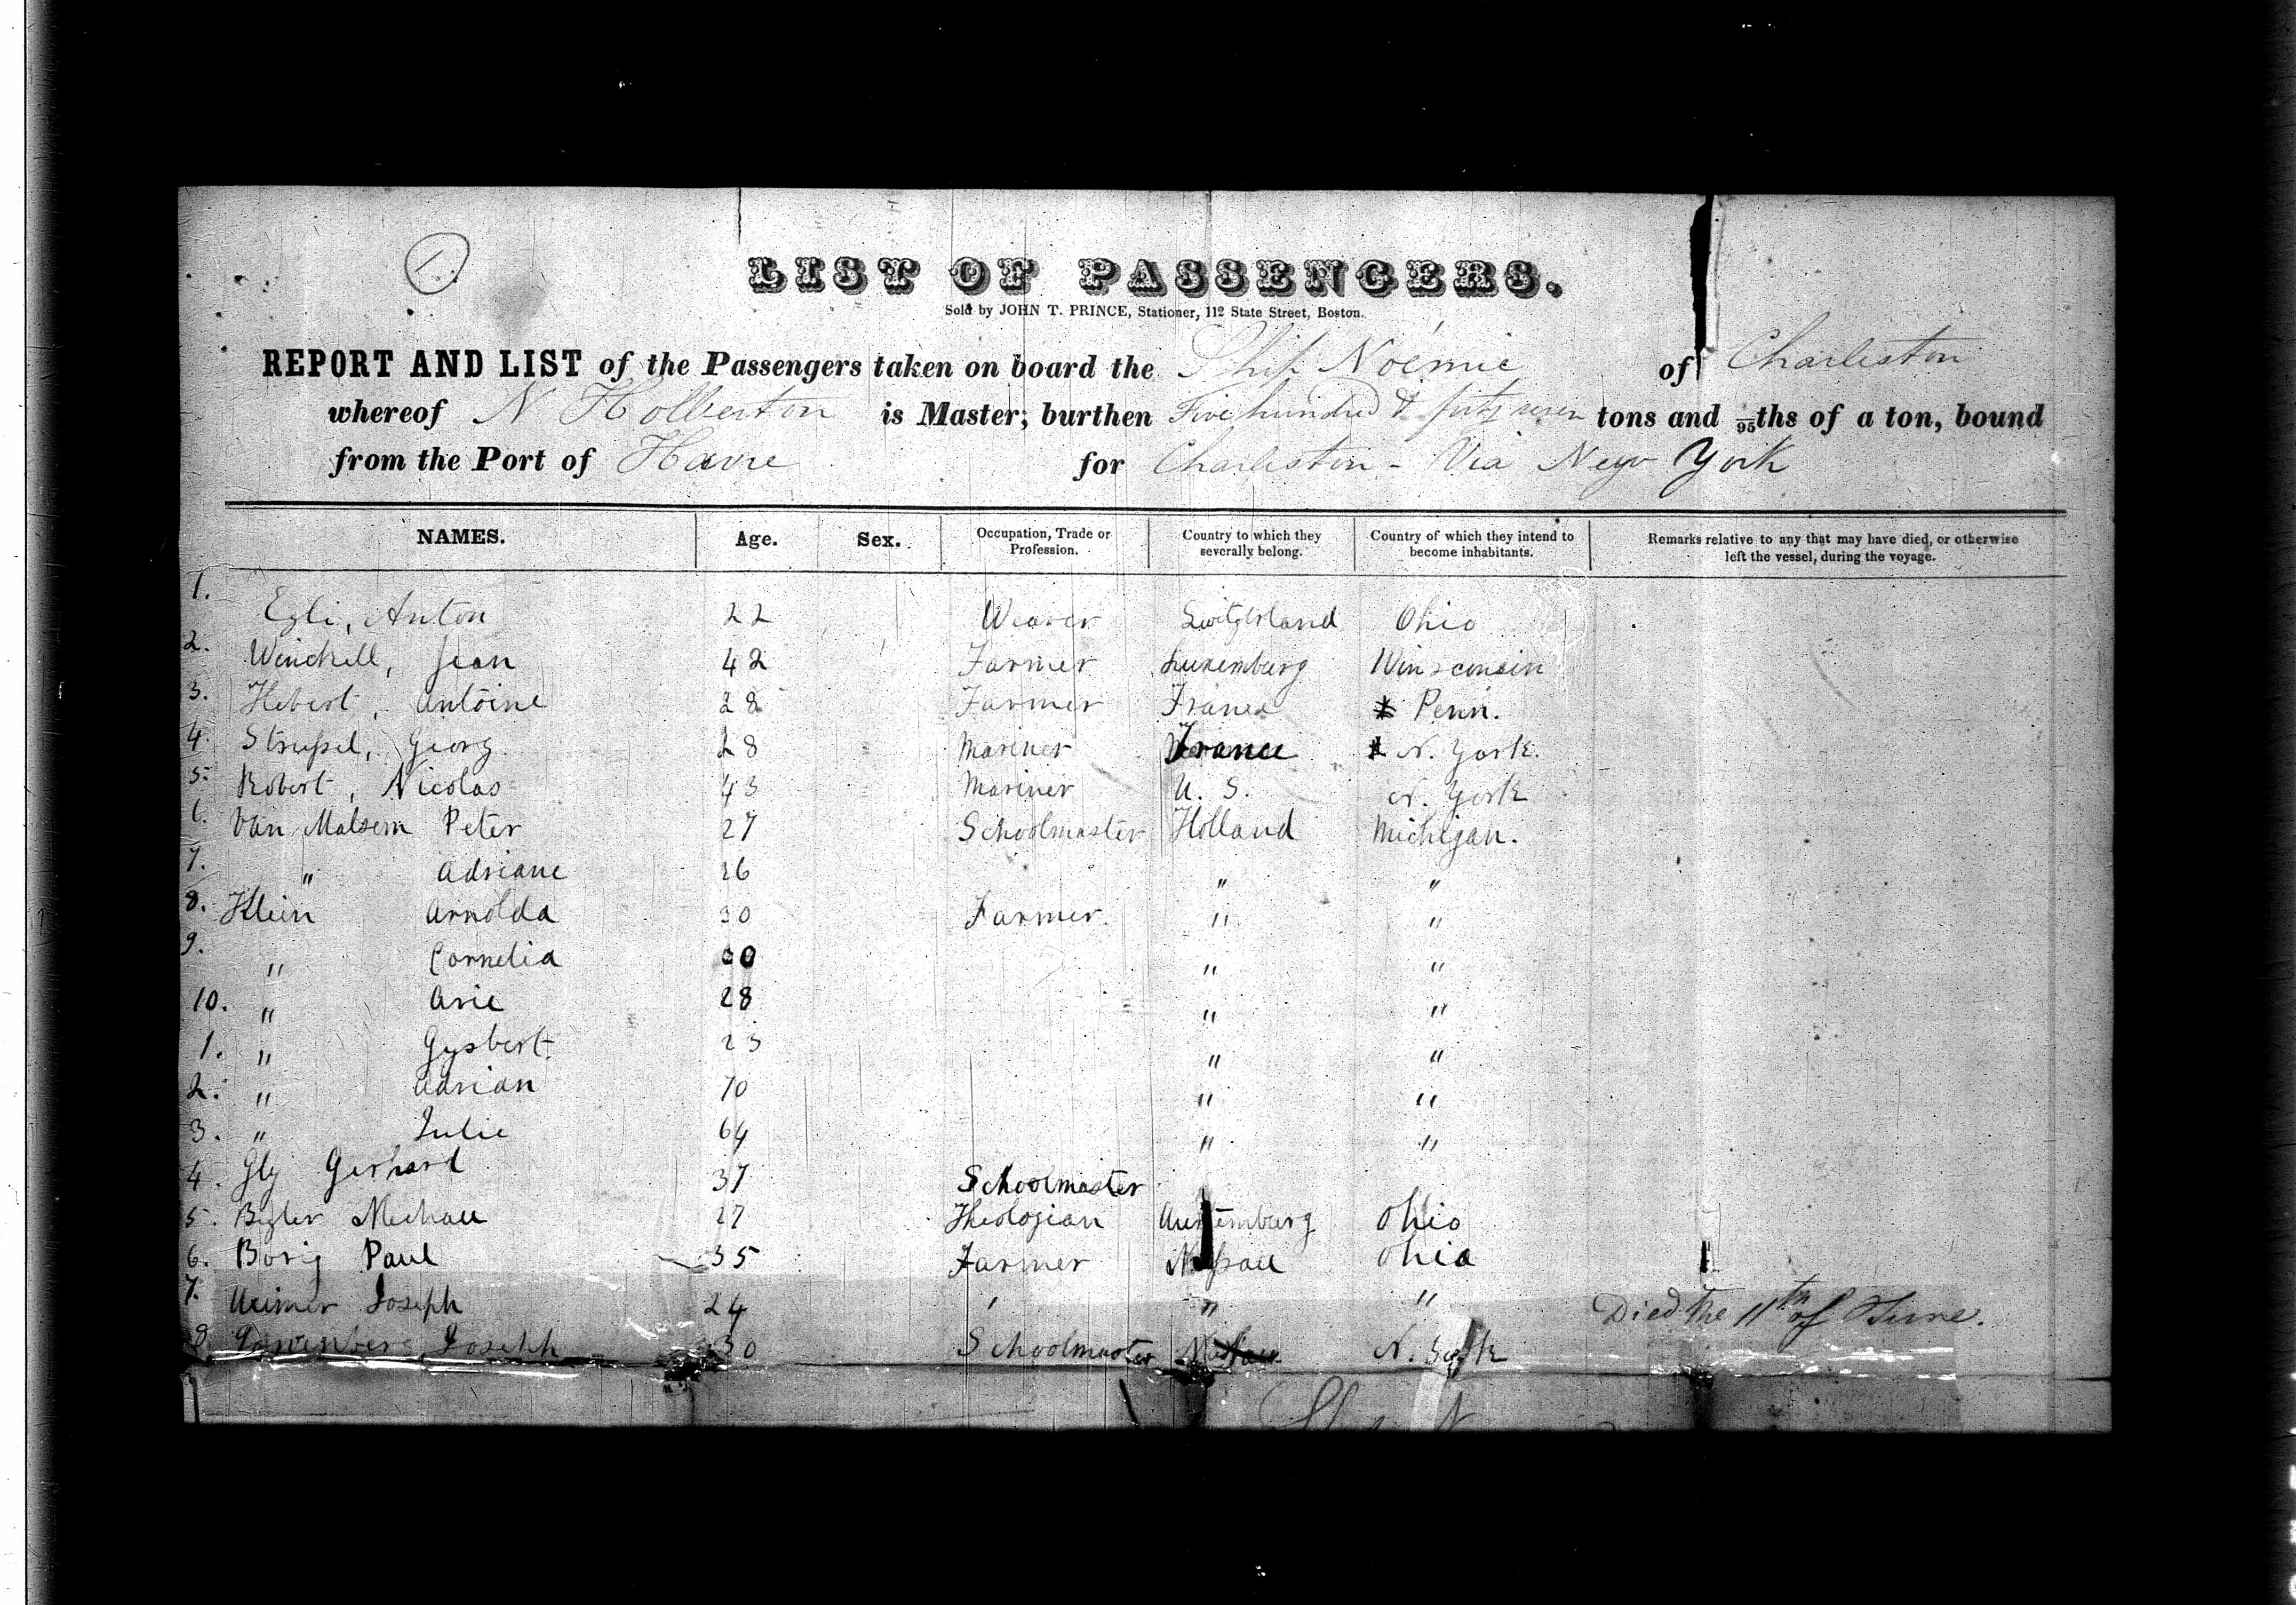 1.
LIST OF PASSENGERS.
Sold by JOHN T. PRINCE, Stationer, 112 State Street, Boston.
REPORT AND LIST of the Passengers taken on board the Ship Noemie of Charleston
whereof N Holberton is Master; burthen Five hundred & fifty seven tons and /95ths of a ton, bound
from the Port of Havre for Charleston - Via New York
NAMES. Age. Sex. Occupation, Trade or Profession. Country to which they severally belong. Country of which they intend to become inhabitants. Remarks relative to any that may have died, or otherwise left the vessel, during the voyage.
1. Egli, Anton 22 Weaver Switzerland Ohio
2. Winckell, Jean 42 Farmer Luxemburg Winsconsin
3. Hebert, Antoine 28 Farmer France Penn.
4. Georg 28 Mariner France N. York.
5. Robert, Nicolas 43 Mariner U. S. N. York
6. Van Malsem Peter 27 Schoolmaster Holland Michigan.
7. " Adriane 26 " "
8. Klein Arnolda 30 Farmer. " "
9. " Cornelia " "
10. " Arie 28 " "
1. " Gysbert 23 " "
2. " Adrian 70 " "
3. " Julie 64 " "
4. Gly Gerhard 37 Schoolmaster
5. Bezler 27 Theologian Ohio
6. Borig Paul 35 Farmer Nassau Ohio
7. Weimer Joseph 24 ' " " Died the 11th of June.
8. Joseph 30 Schoolmaster Nassau N. York